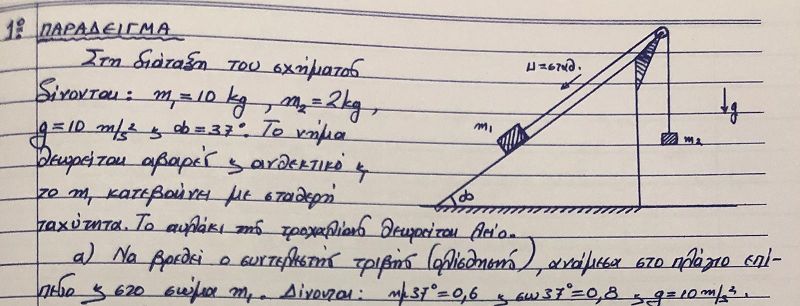 1º: ΠΑΡΑΔΕΙΓΜΑ
Στη διάταξη του σχήματος
δίνονται: m₁=10 kg, m₂=2kg,
g=10 m/s² ϗ φ=37°. Το νήμα
θεωρείται αβαρές ϗ ανθεκτικό ϗ
το m₁ κατεβαίνει με σταθερή
ταχύτητα. Το αυλάκι της τροχαλίας θεωρείται λείο.
α) Να βρεθεί ο συντελεστής τριβής (ολίσθησης), ανάμεσα στο πλάγιο επί-
πεδο ϗ στο σώμα m₁. Δίνονται: ημ37°=0,6 ϗ συν37°=0,8 ϗ g=10 m/s².
υ=σταθ.
m₁
g
m₂
φ